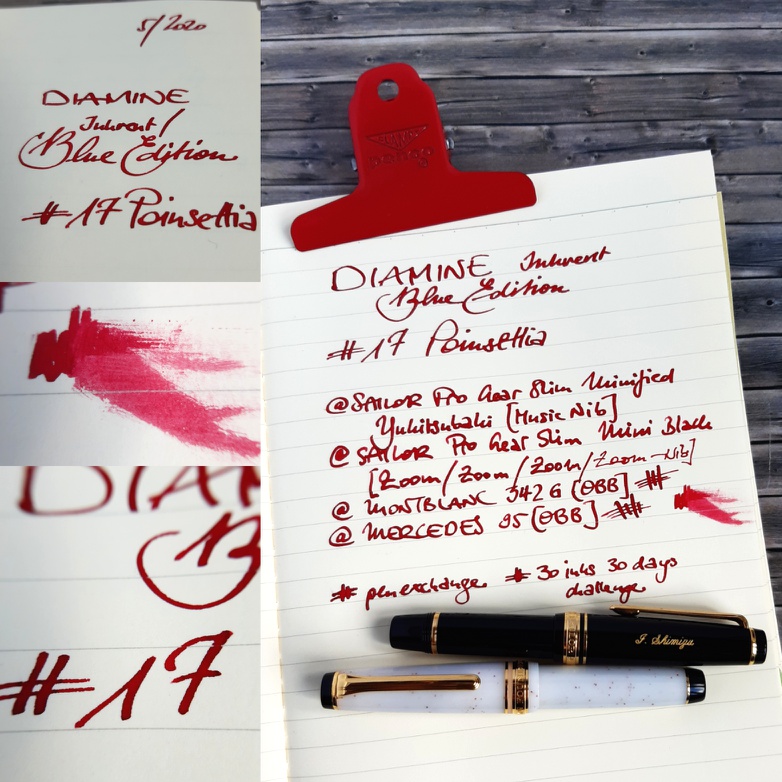 5/2020
DIAMINE
Inkvent/
Blue Edition
#17 Poinsettia
DIA
B
#17
DIAMINE Inkvent
Blue Edition
#17 Poinsettia
@SAILOR Pro Gear Slim Minified
Yukitsubaki [Music Nib]
@ SAILOR Pro Gear Slim Mini Black
[Zoom/Zoom/Zoom/Zoom-Nib]
@ MONTBLANC 342 G [OBB]
@ MERCEDES 95 [OBB]
# penexchange # 30 inks 30 days
challenge
I. Shimizu